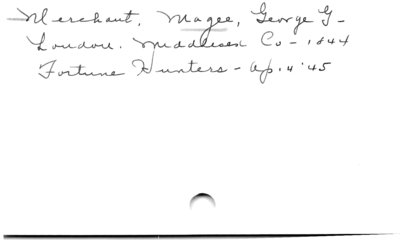 Merchant, Magee, George G-
London. Middlesex Co - 1844
Fortune Hunters - Ap. 4 '45